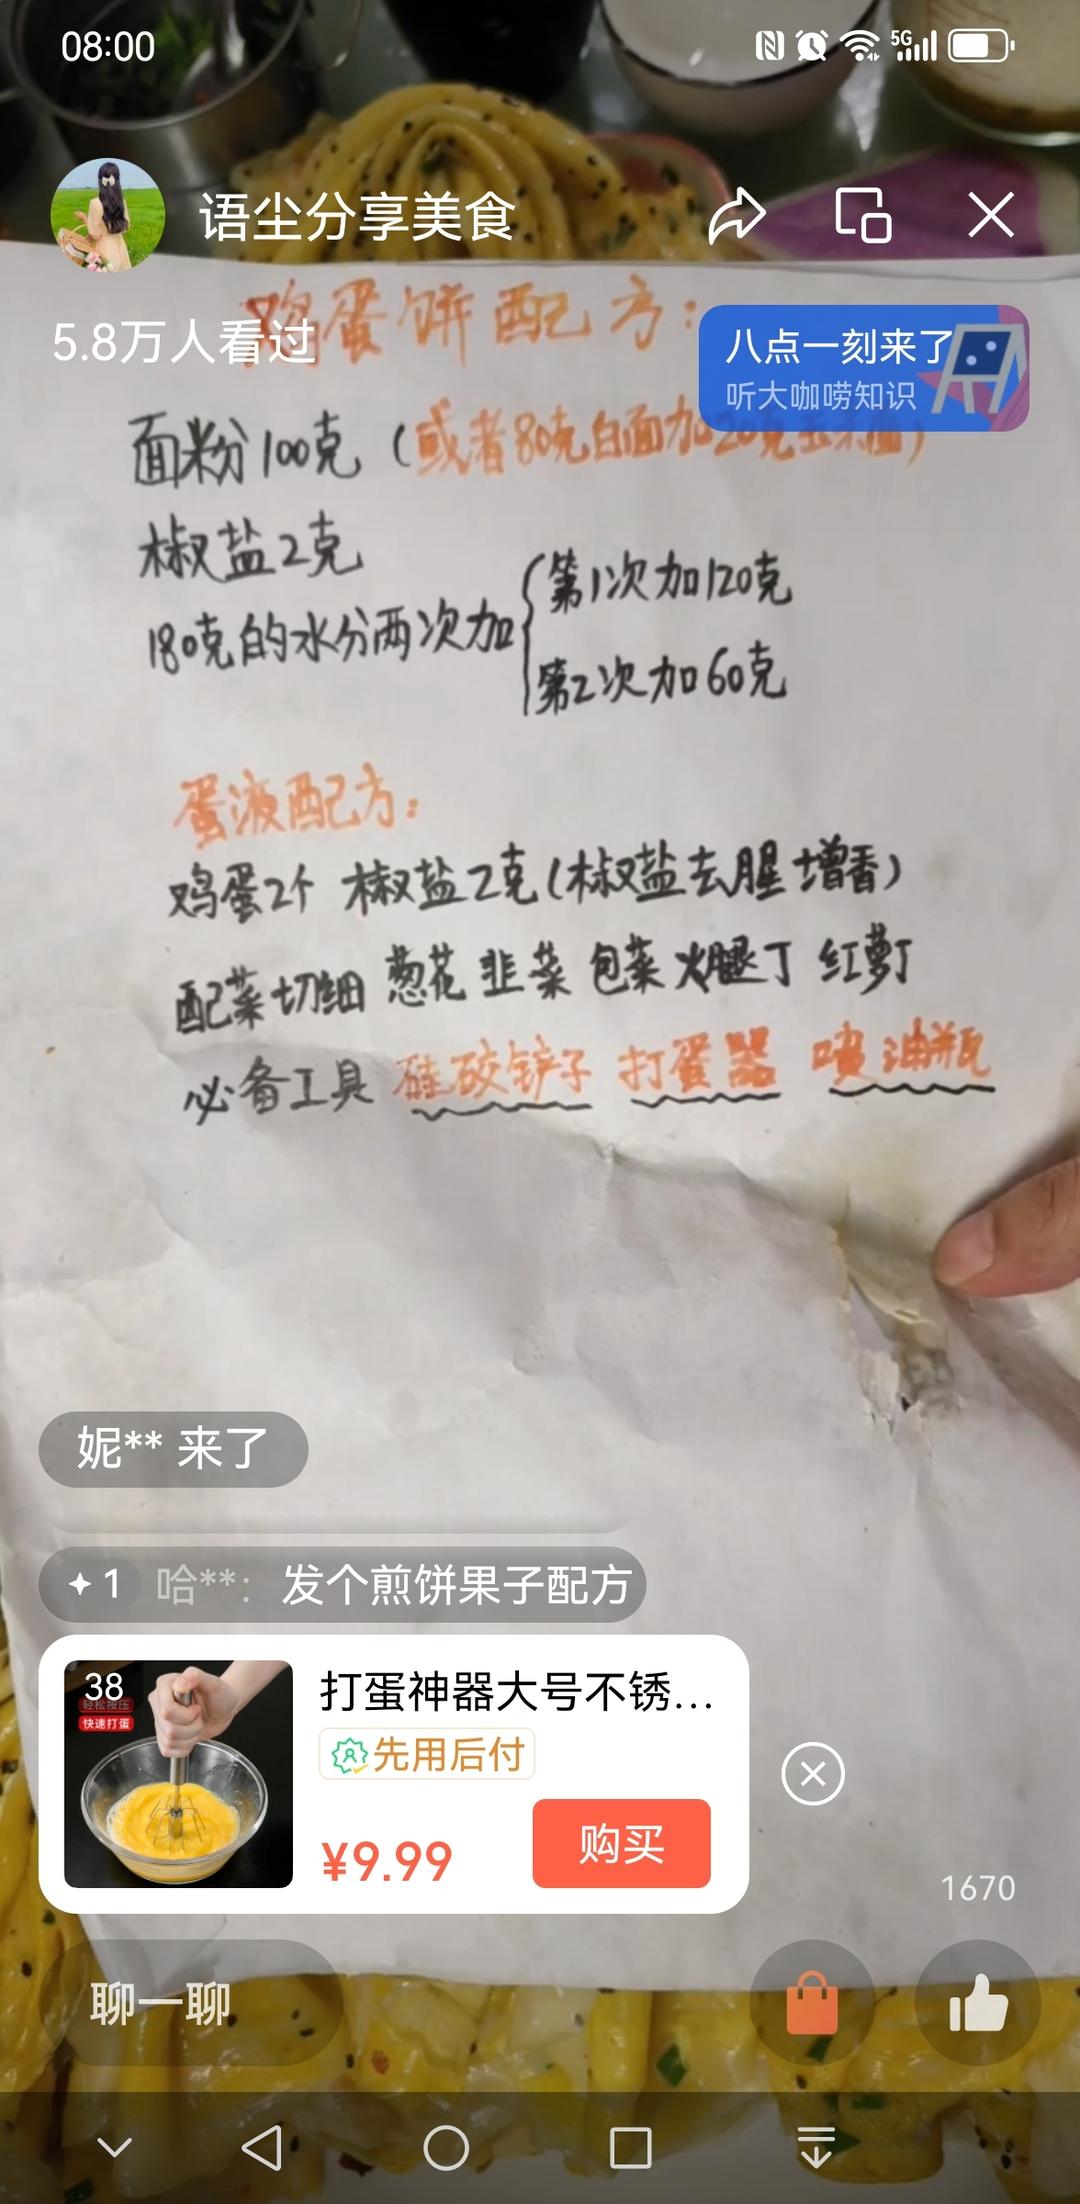 08:00
5G
语尘分享美食
5.8万人看过
鸡蛋饼配方：
八点一刻来了
听大咖唠知识
面粉100克（或者80克白面加20克玉米面）
椒盐2克
180克的水分两次加
第1次加120克
第2次加60克
蛋液配方：
鸡蛋2个 椒盐2克（椒盐去腥增香）
配菜切细 葱花 韭菜 包菜 火腿丁 红萝丁
必备工具 硅胶铲子 打蛋器 喷油瓶
妮** 来了
1 哈**： 发个煎饼果子配方
38
轻松按压
快速打蛋
打蛋神器大号不锈...
先用后付
¥9.99
购买
1670
聊一聊